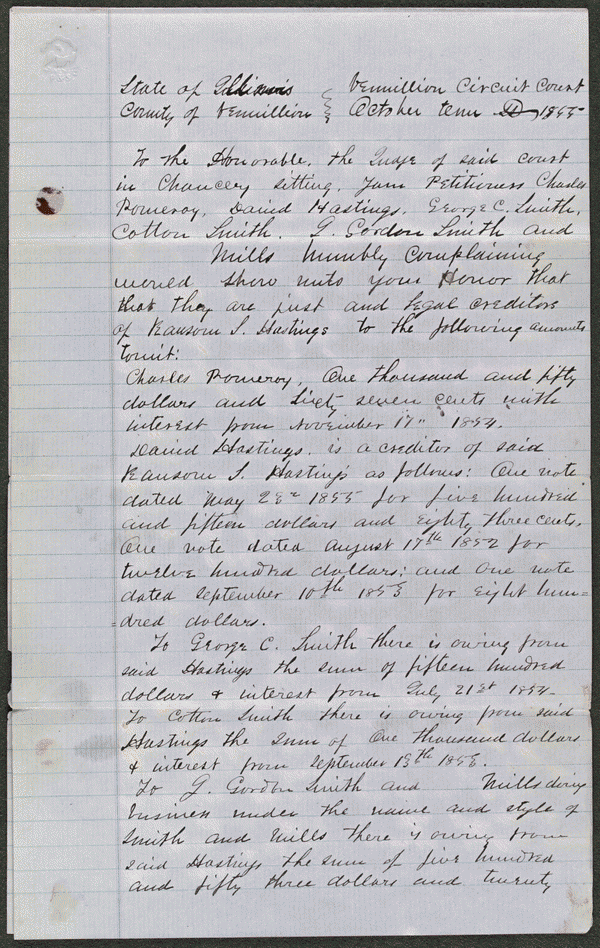 State of Illinois } Vermillion Circuit Court
County of Vermillion } October term D 1855
To the Honorable, the Judge of said court
in Chancery sitting, Your Petitioners Charles
Pomeroy, David Hastings, George C. Smith,
Cotton Smith, G. Gordon Smith and
Mills humbly complaining
would show unto your Honor that
that they are just and legal creditors
of Ransom S. Hastings to the following amounts
towit:
Charles Pomeroy, One thousand and fifty
dollars and sixty seven cents with
interest from November 17" 1854.
David Hastings is a creditor of said
Ransom S. Hastings as follows: One note
dated May 1855 for five hundred
and fifteen dollars and eighty three cents.
One note dated August 17th 1852 for
twelve hundred dollars; and one note
dated September 10th 1853 for Eight hun=
=dred dollars.
To George C. Smith there is owing from
said Hastings the sum of fifteen hundred
dollars & interest from July 21st 1854.
To Cotton Smith there is owing from said
Hastings the sum of One thousand dollars
& interest from September 13th 1853.
To G. Gordon Smith and Mills doing
business under the name and style of
Smith and Mills there is owing from
said Hastings the sum of five hundred
and fifty three dollars and twenty